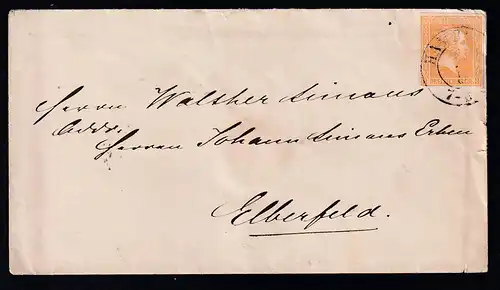 HAN
Herrn Walther Simons
Addr.
Herren Johann Simons Erben
Elberfeld.